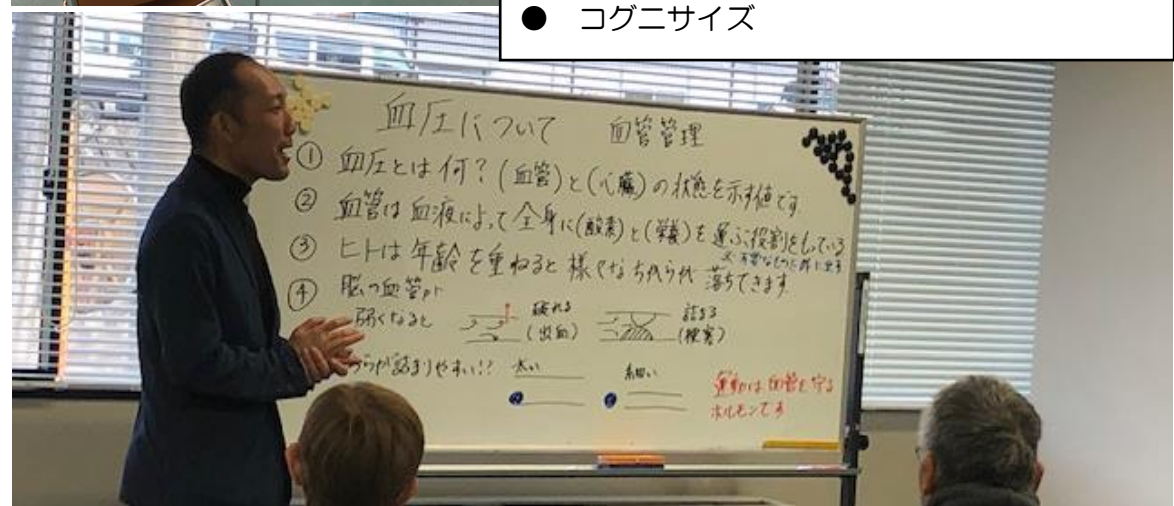 ● コグニサイズ
血圧について 血管管理
① 血圧とは何?(血管)と(心臓)の状態を示す値です
② 血管は血液によって全身に(酸素)と(栄養)を運ぶ役割をもっている
③ ヒトは年齢を重ねると様々なちから 落ちてきます
④ 脳の血管が
弱くなると
破れる
(出血)
詰まる
(梗塞)
が詰まりやすい!?
太い
細い
運動は血管を守る
ホルモンです